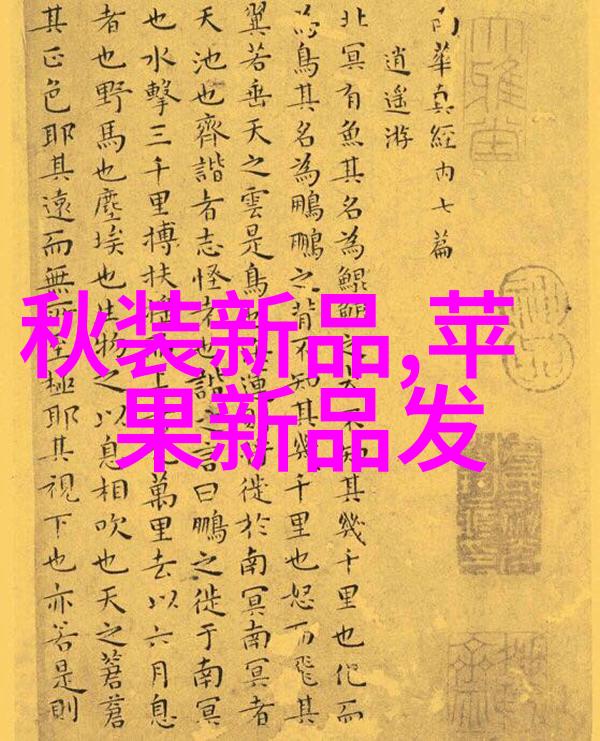 秋装新品,苹
果新品发
南華真經內七篇
逍遙游
北冥有魚其名為鯤鯤之大不知其幾千里也化而
為鳥其名為鵬鵬之背不知其幾千里也怒而飛其
翼若垂天之雲是鳥也運徙於南冥南冥者
天池也齊諧者志怪者也諧之言曰鵬之徙于南冥
也水擊三千里搏扶搖而上萬里去以六月息
者也野馬也塵埃也生物之以息相吹也天之蒼蒼
其正色耶其遠而無所至極耶其視下也亦若是則
大雅堂
神品